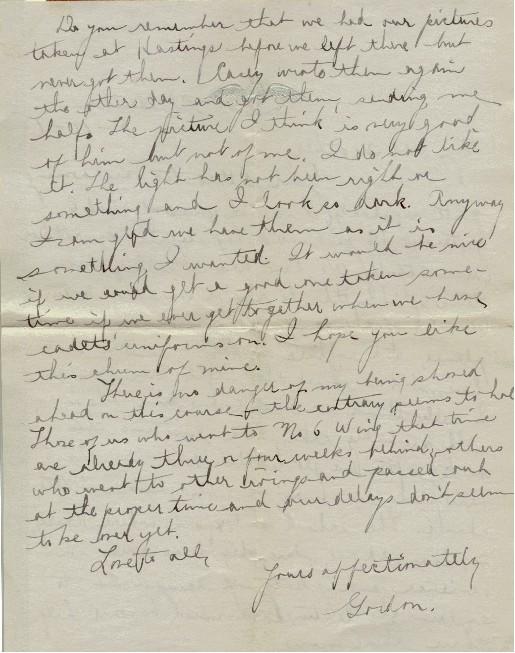 Do you remember that we had our pictures
taken at Hastings before we left there but
never got them. Casey wrote them again
the other day and got them, sending me
half. The picture I think is very good
of him but not of me. I do not like
it. The light has not been right or
something and I look so dark. Anyway
I am glad we have them as it is
something I wanted. It would be nice
if we could get a good one taken some-
time if we ever get together when we have
cadets uniforms on. I hope you like
this chum of mine.
There is no danger of my being shoved
ahead on this course & the contrary seems to hol
Those of us who went to No 6 Wing that time
are already three or four weeks behind, others
who went to other wings and passed out
at the proper time and our delays don't seem
to be over yet.
Love to all,
Yours affectionately
Gordon.